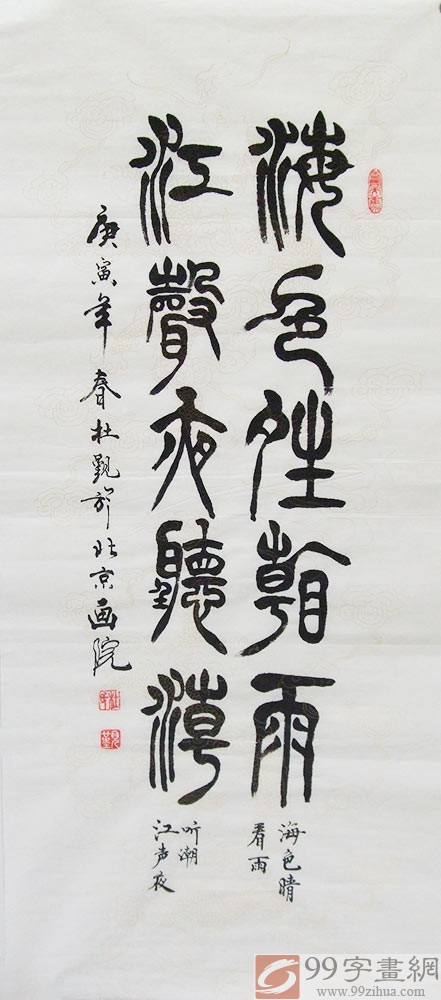 海色晴看雨
江聲夜聽潮
庚寅年春杜觐於北京画院
海色晴
看雨
江声夜
听潮
99字畫網
www.99zihua.com